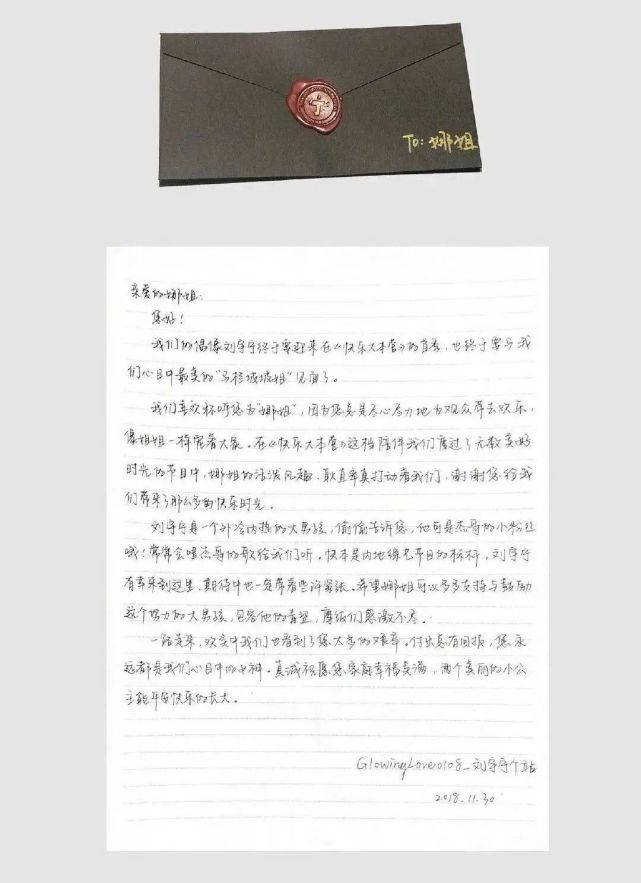 To: 娜姐
亲爱的娜姐:
您好!
我们的偶像刘宇宁终于要迎来在《快乐大本营》的首秀, 也终于要与我
们心目中最美的"马栏坡坡姐"见面了。
我们喜欢称呼您为"娜姐", 因为您总是尽心尽力地为观众带去欢乐,
像姐姐一样宠着大家。在《快乐大本营》这档陪伴我们度过了无数美好
时光的节目中, 娜姐的活泼风趣、耿直率真打动着我们, 谢谢您给我
们带来了那么多的快乐时光。
刘宇宁是一个外冷内热的大男孩, 偷偷告诉您, 他可是杰哥的小粉丝
哦! 常常会唱杰哥的歌给我们听。快本是内地综艺节目的标杆, 刘宇宁
有幸来到这里, 期待中也一定带着些许紧张。希望娜姐可以多多支持与鼓励
这个努力的大男孩, 包容他的青涩, 摩纸们感激不尽。
一路走来, 欢笑中我们也看到了您太多的艰辛。付出总有回报, 您永
远都是我们心目中的女神。真诚祝愿您家庭幸福美满, 两个美丽的小公
主能平安快乐的长大。
GlowingLover0108_刘宇宁个站
2018.11.30